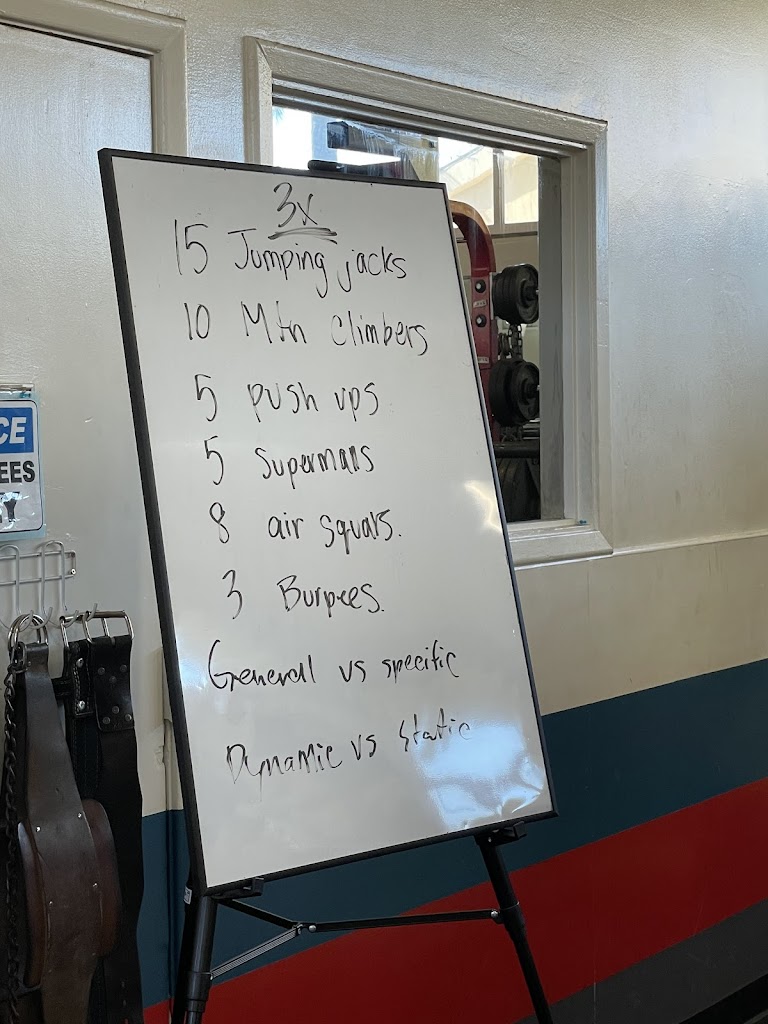 3x
15 Jumping jacks
10 Mtn climbers
5 push ups
5 Supermans
8 air squats.
3 Burpees.
Generall vs specific
Dynamic vs static
CE
EES